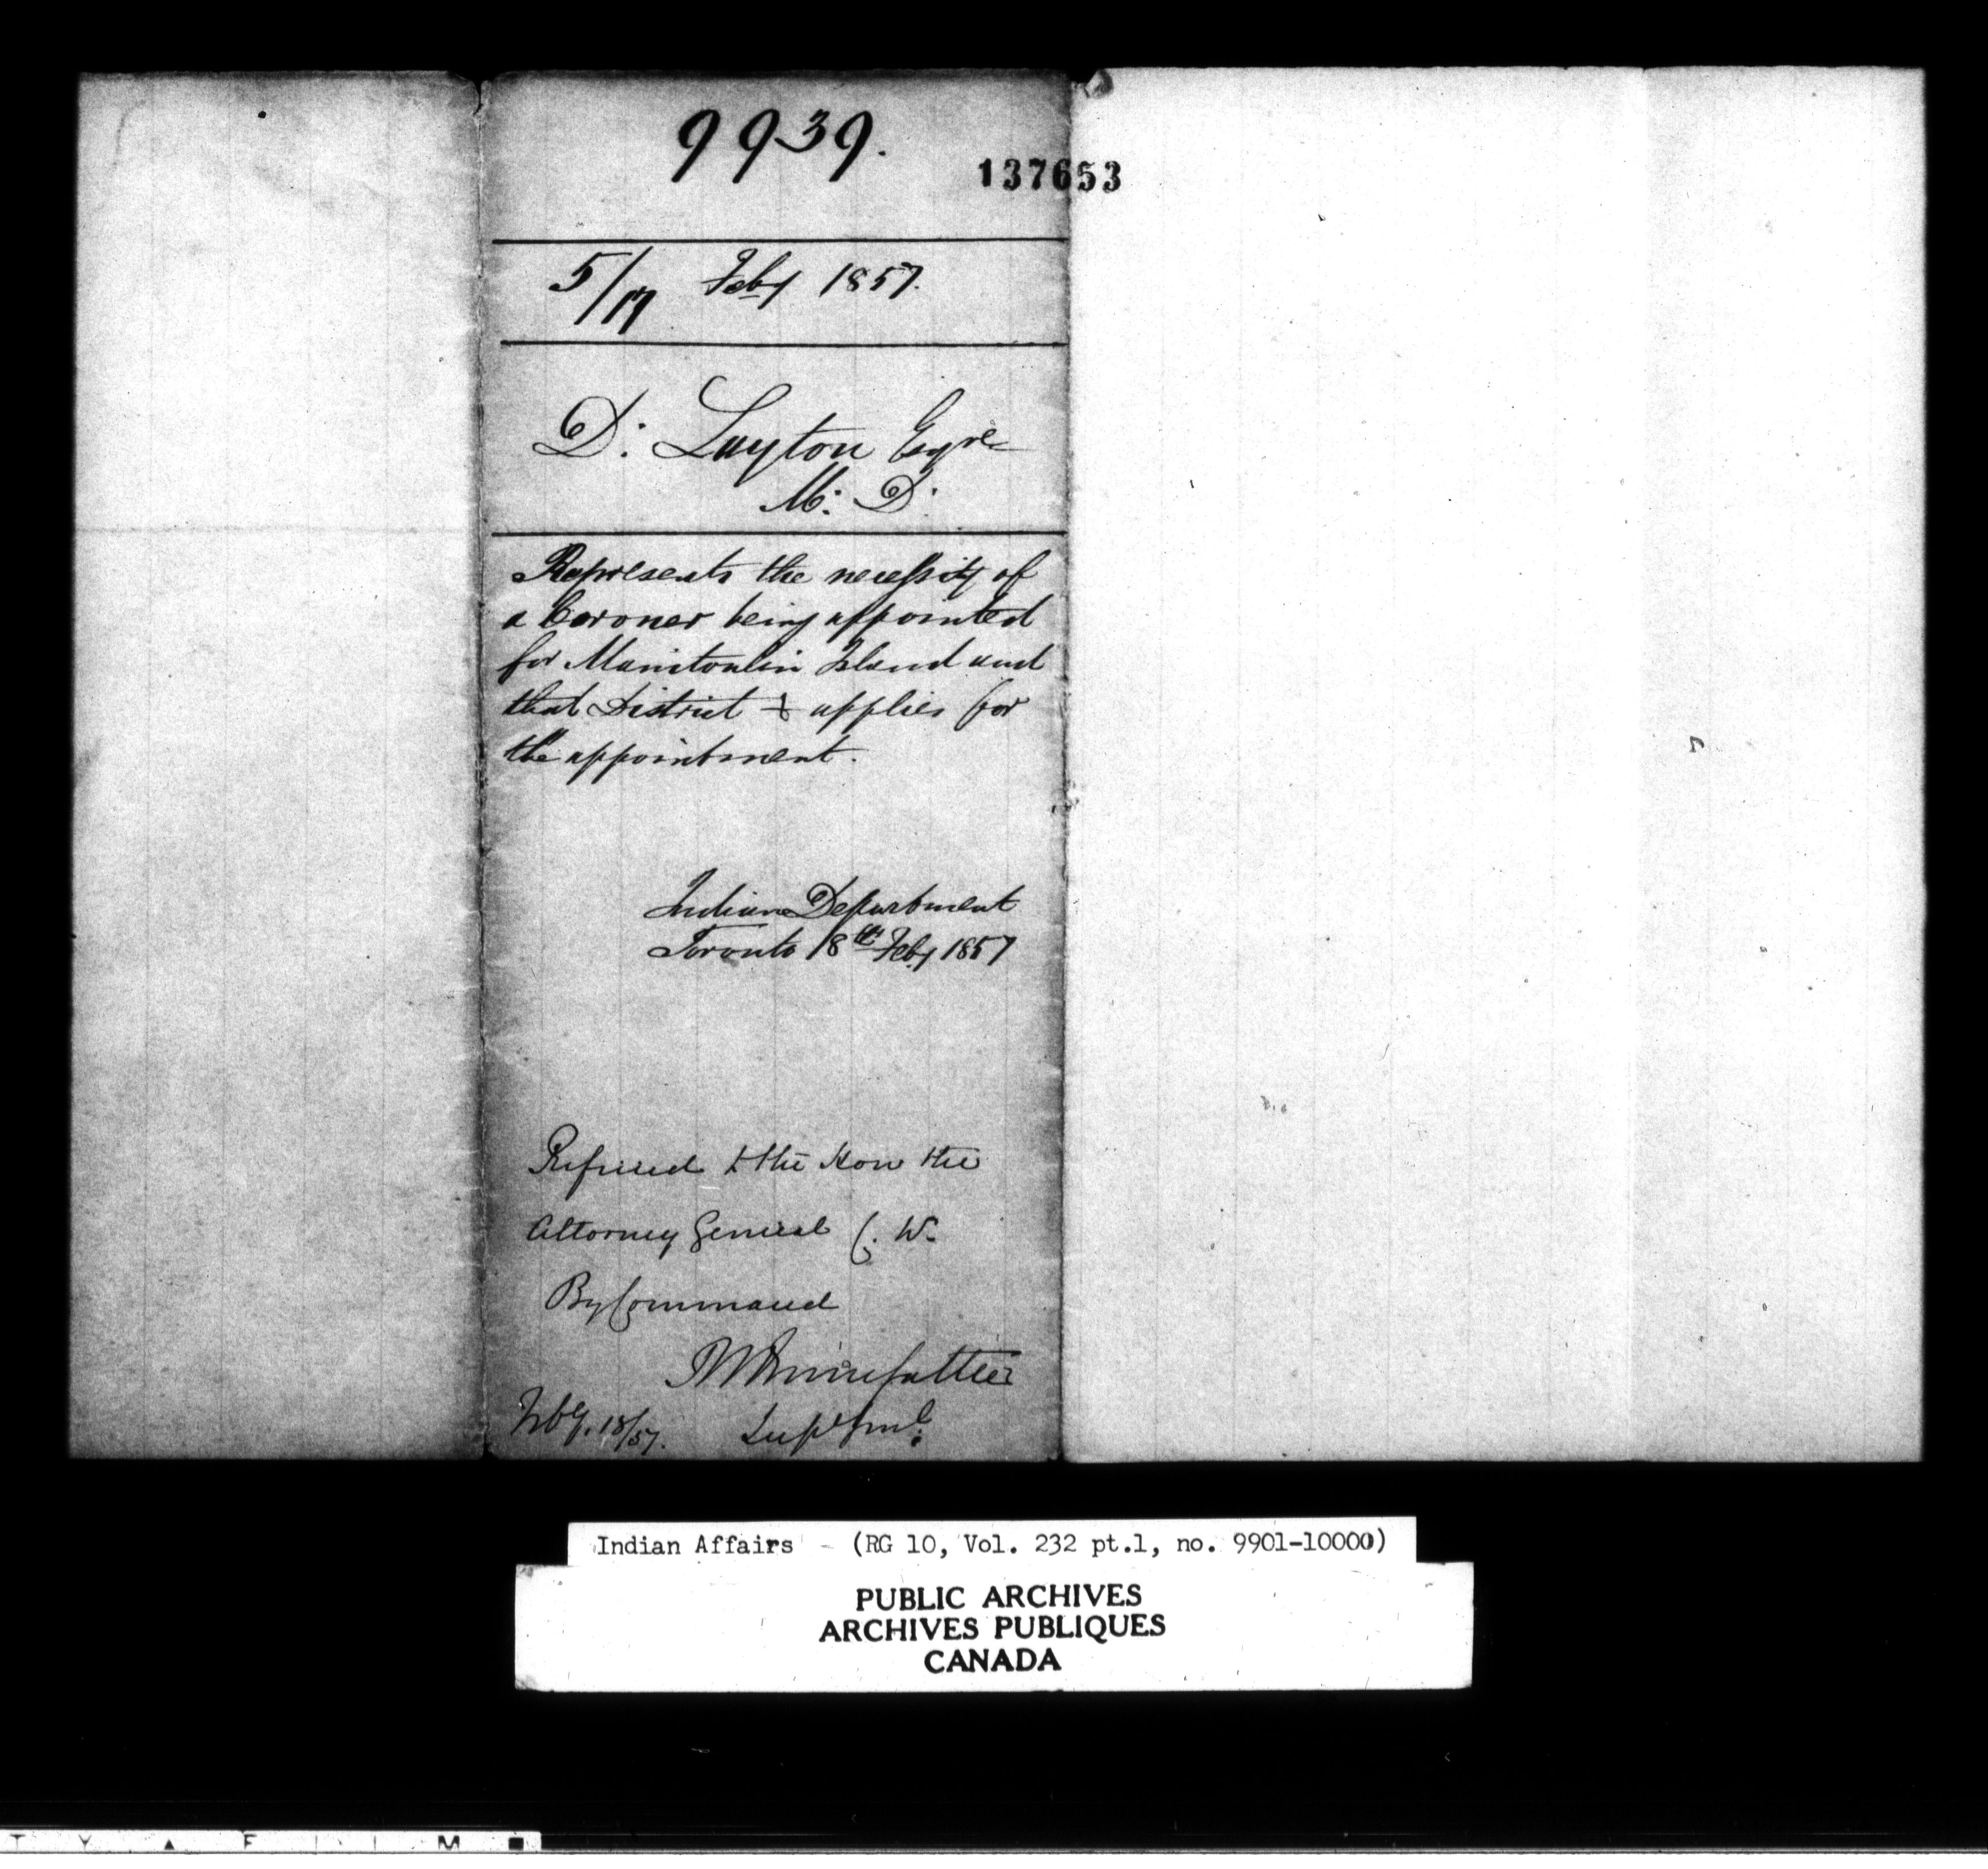 9939.
137653
5/17 Feby 1857.
D. Layton Esqre
M. D.
Represents the necessity of
a Coroner being appointed
for Manitoulin Island and
that District & applies for
the appointment.
Indian Department
Toronto 18th Feby 1857
Referred to the Hon the
Attorney General C. W.
By Command
Feby. 18/57. Supt Genl.
Indian Affairs - (RG 10, Vol. 232 pt.1, no. 9901-10000)
PUBLIC ARCHIVES
ARCHIVES PUBLIQUES
CANADA